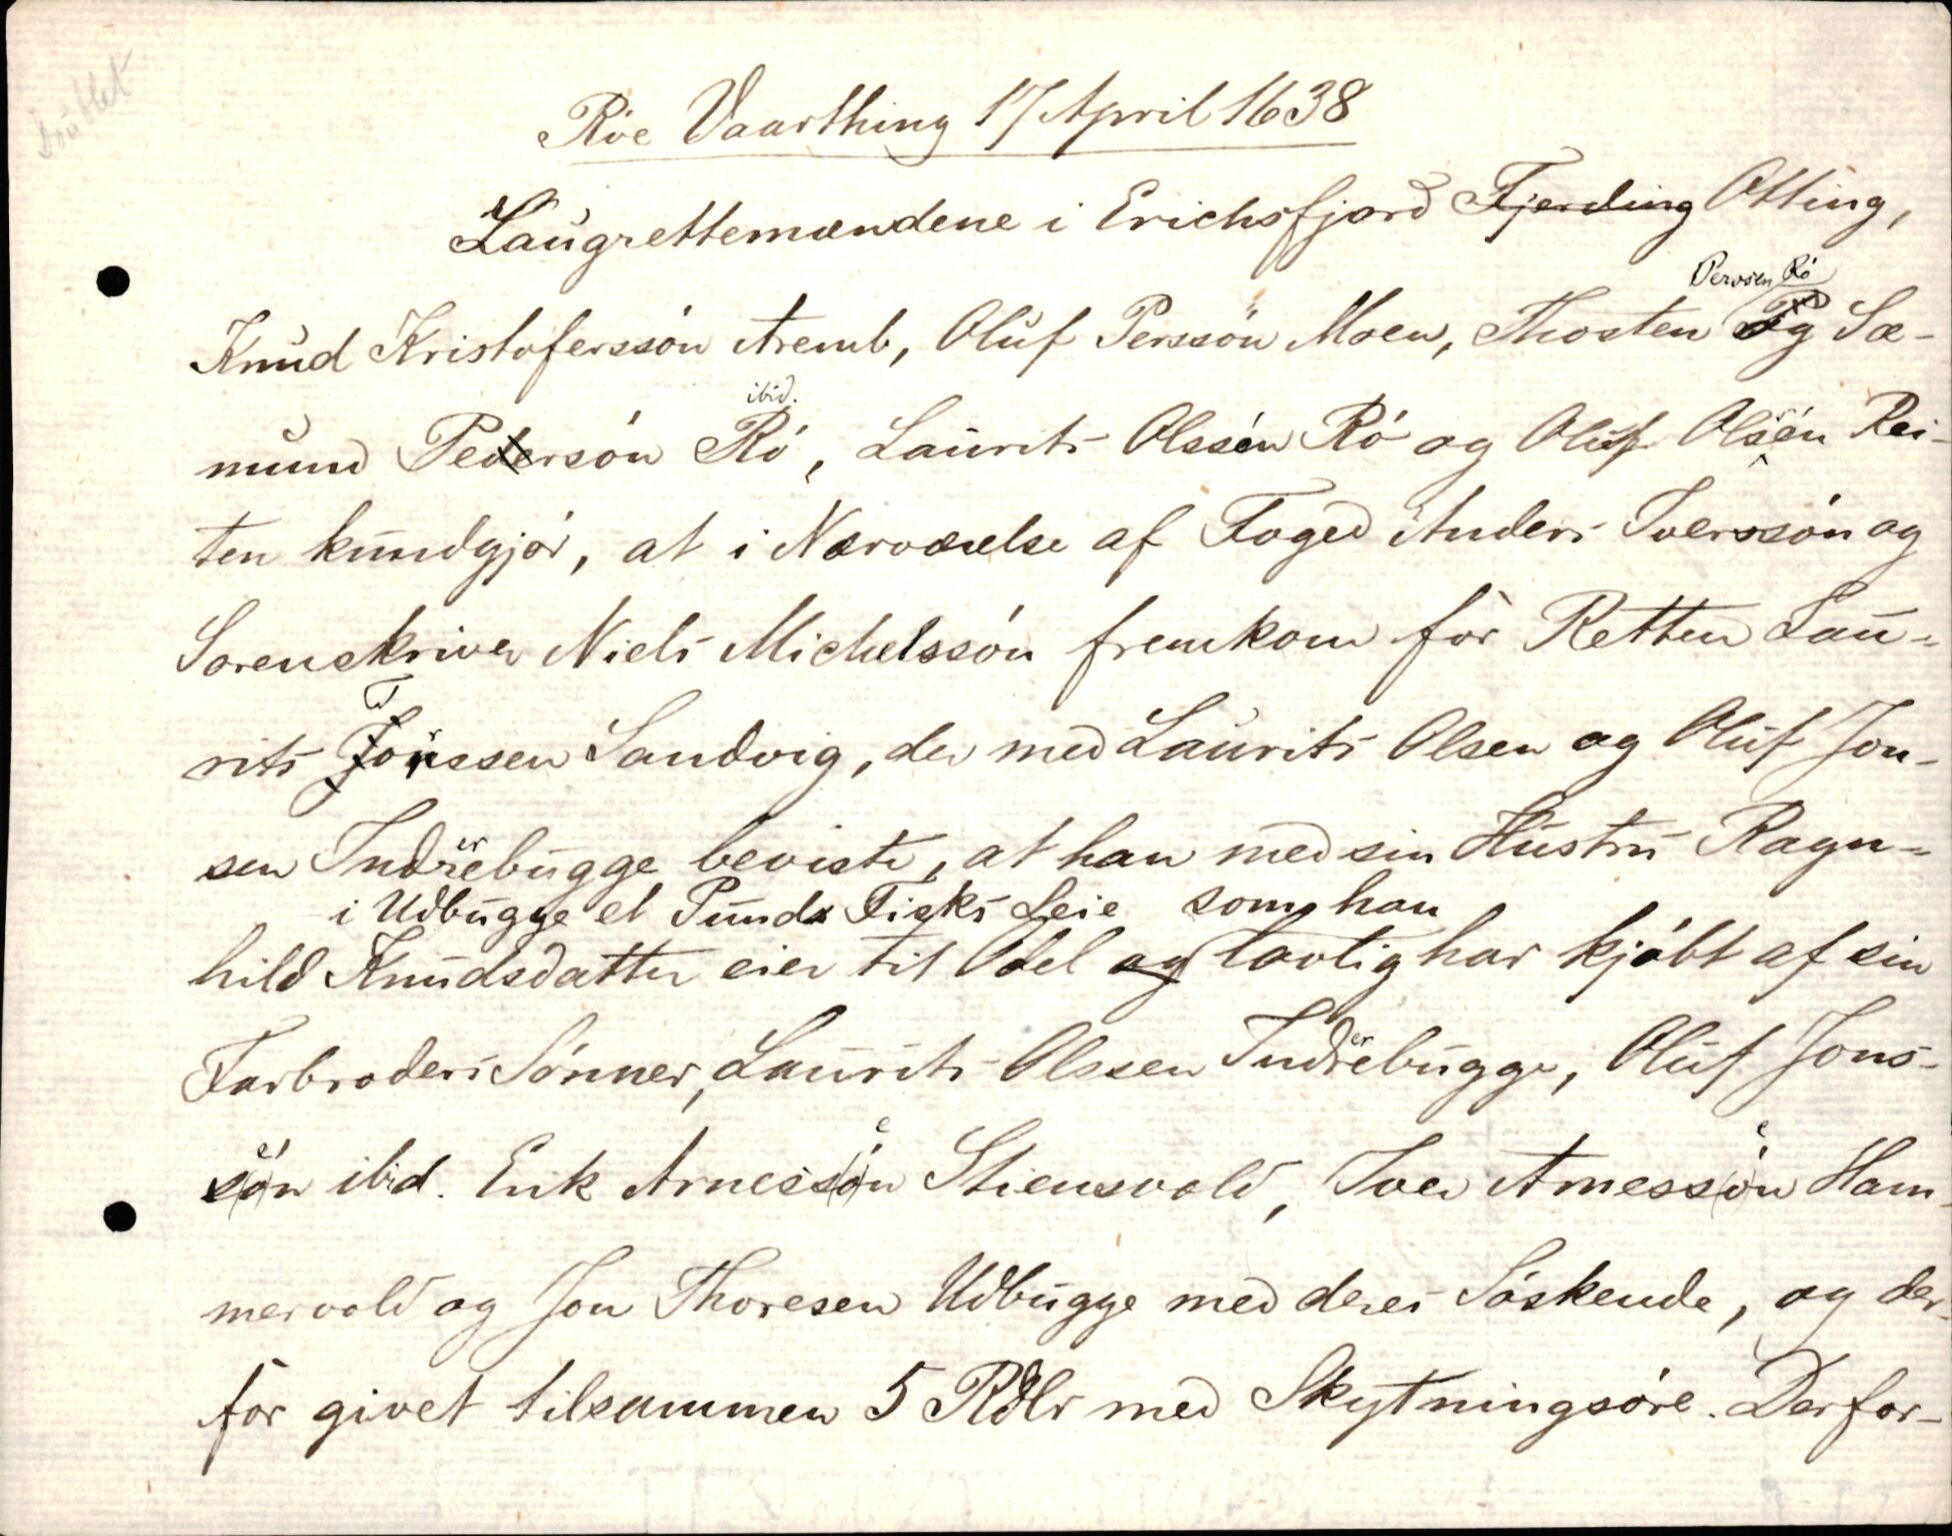 Doublet
Röe Vaarthing 17 April 1638
Laugrettemændene i Erichsfjord Fjerding Otting,
Perssen Rö
Knud Kristoferssön Aremb, Oluf Perssön Moen, Thosten og Sæ-
ibid.
mund Pedersön Rö, Laurits Olssén Rö og Oluf Olsén Rei-
ten kundgjör, at i Nærværelse af Foged Anders Iverssön og
Sorenskriver Niels Michelssön fremkom för Retten Lau-
rits Jonssen Sandvig, der med Laurits Olsen og Oluf Jon-
sen Indrebugge beviste, at han med sin Hustru Ragn-
i Udbugge et Punds Fisks Leie som han
hild Knudsdatter eier til Odel og lovlig har kjöbt af sin
Farbroders Sönner, Laurits Olssen Indrebugge, Oluf Jons-
sön ibid. Erik Arnessön Stiensvold, Iver Arnessön Ham-
mervold og Jon Thoresen Udbugge med deres Söskende, og der-
for givet tilsammen 5 Rdlr med Skytningsöre. Derfor-